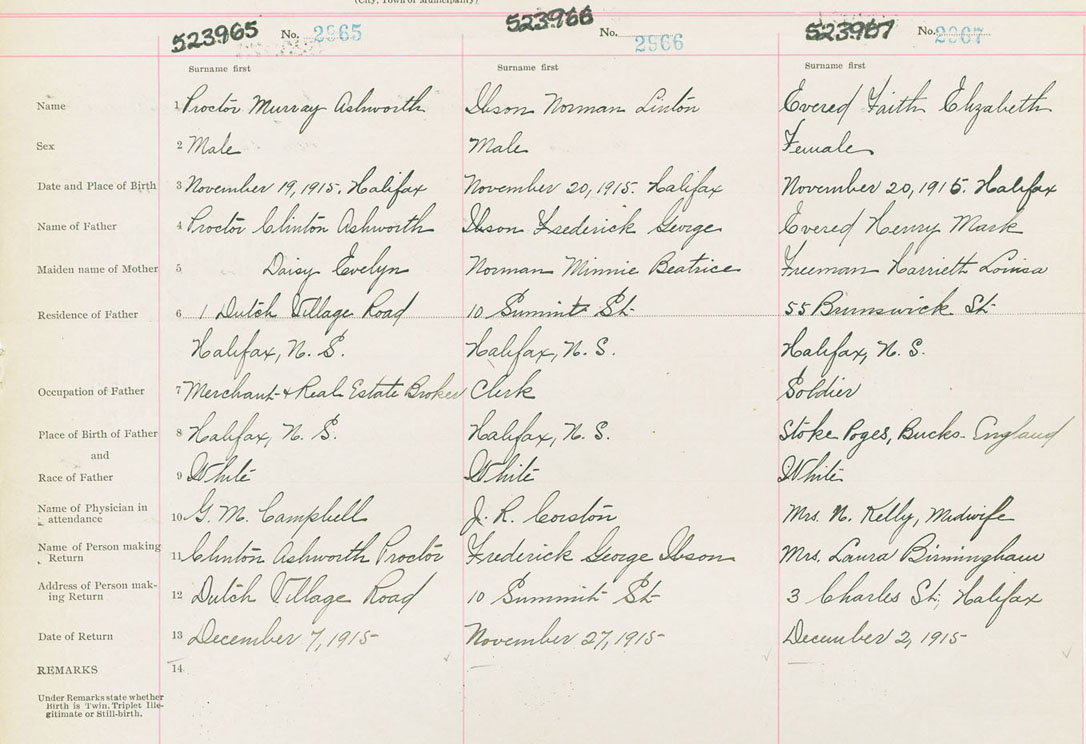 (City, Town or Municipality)
523965 No. 2965 523966 No. 2966 523967 No. 2967
Surname first Surname first Surname first
Name 1 Proctor Murray Ashworth Ibson Norman Linton Evered Faith Elizabeth
Sex 2 Male Male Female
Date and Place of Birth 3 November 19, 1915. Halifax November 20, 1915. Halifax November 20, 1915. Halifax
Name of Father 4 Proctor Clinton Ashworth Ibson Frederick George Evered Henry Mark
Maiden name of Mother 5 Daisy Evelyn Norman Minnie Beatrice Freeman Harriett Louisa
Residence of Father 6 1 Dutch Village Road 10 Summit St. 55 Brunswick St.
Halifax, N. S. Halifax, N. S. Halifax, N. S.
Occupation of Father 7 Merchant & Real Estate Broker Clerk Soldier
Place of Birth of Father 8 Halifax, N. S. Halifax, N. S. Stoke Poges, Bucks- England
and
Race of Father 9 White White White
Name of Physician in
attendance 10 G. M. Campbell J. R. Corston Mrs. N. Kelly, Midwife
Name of Person making
Return 11 Clinton Ashworth Proctor Frederick George Ibson Mrs. Laura Birmingham
Address of Person mak-
ing Return 12 Dutch Village Road 10 Summit St. 3 Charles St., Halifax
Date of Return 13 December 7, 1915 November 27, 1915 December 2, 1915
REMARKS 14
Under Remarks state whether
Birth is Twin. Triplet Ille-
gitimate or Still-birth.